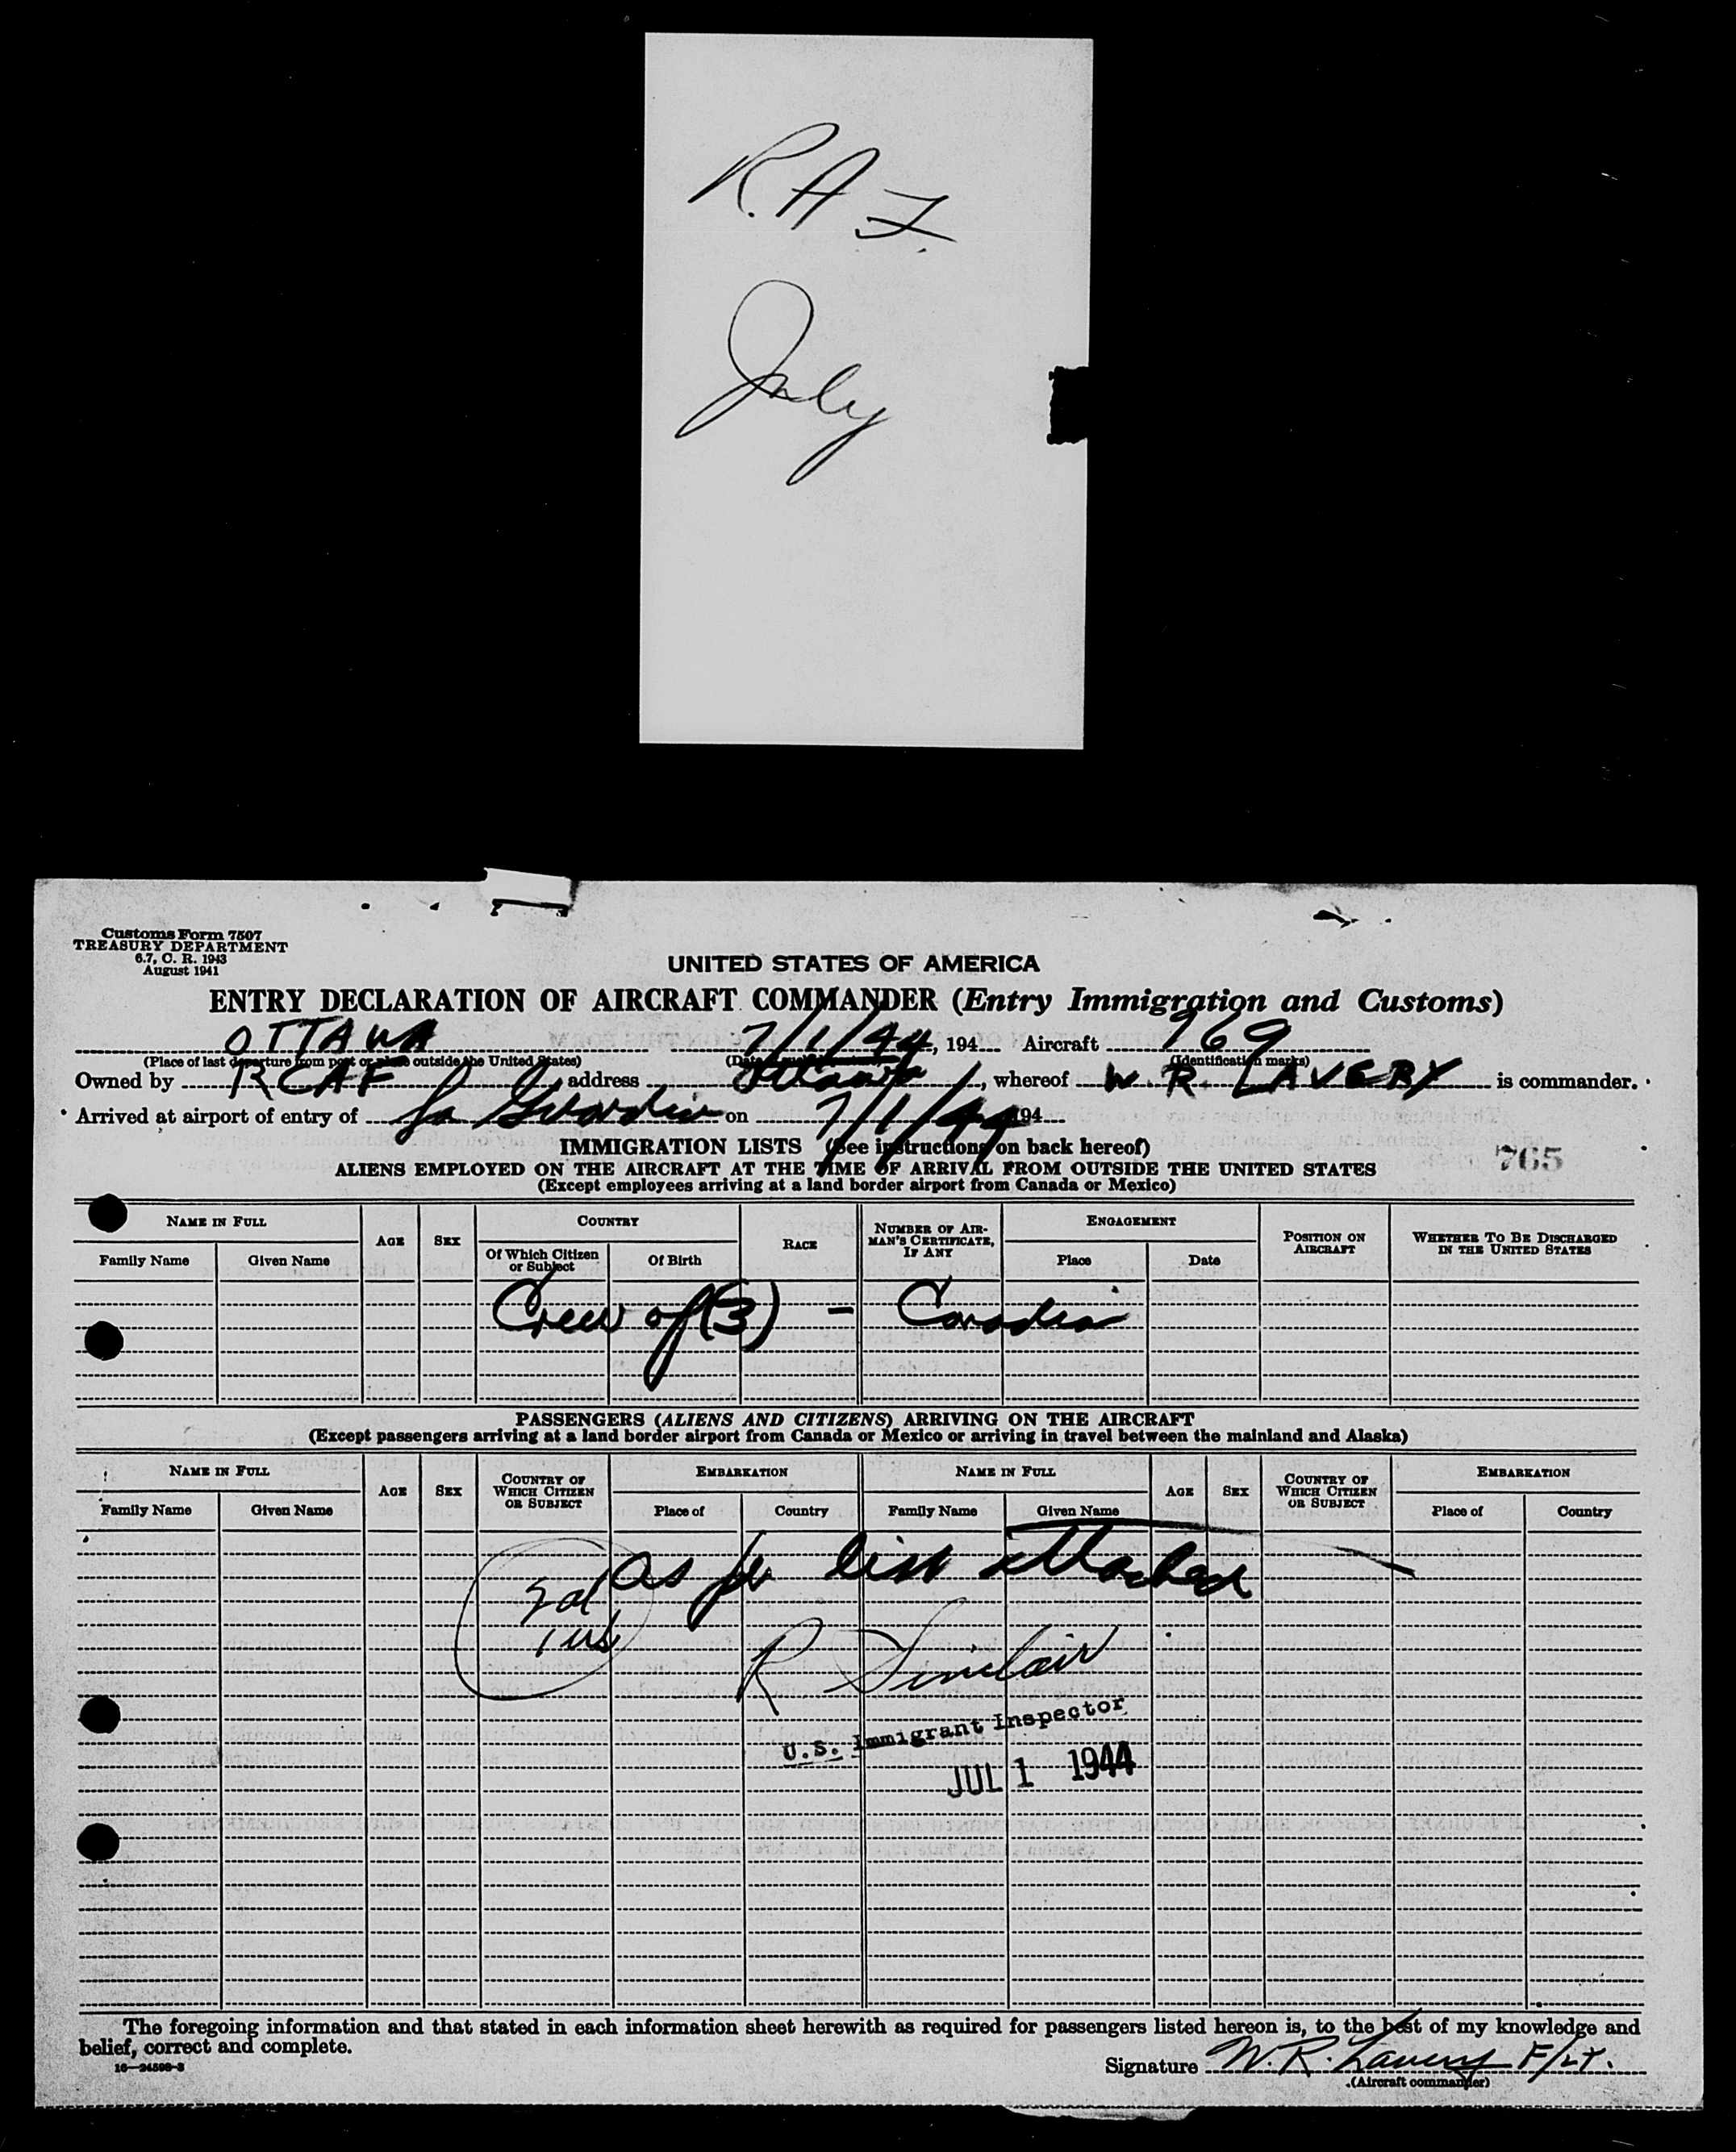 R.A.F.
July
Customs Form 7507
TREASURY DEPARTMENT
6.7, C. R. 1943
August 1941
UNITED STATES OF AMERICA
ENTRY DECLARATION OF AIRCRAFT COMMANDER (Entry Immigration and Customs)
OTTAWA 7/1/44, 194 Aircraft 769
(Place of last departure from port or place outside the United States) (Identification marks)
Owned by RCAF, address Ottawa, whereof W. R. LAVERY is commander.
Arrived at airport of entry of La Guardia on 7/1/44 194
IMMIGRATION LISTS (See instructions on back hereof)
765
ALIENS EMPLOYED ON THE AIRCRAFT AT THE TIME OF ARRIVAL FROM OUTSIDE THE UNITED STATES
(Except employees arriving at a land border airport from Canada or Mexico)
NAME IN FULL AGE SEX COUNTRY RACE NUMBER OF AIRMAN'S CERTIFICATE, IF ANY ENGAGEMENT POSITION ON AIRCRAFT WHETHER TO BE DISCHARGED IN THE UNITED STATES
Family Name Given Name Of Which Citizen or Subject Of Birth Place Date
Crew of (3) - Canadian
PASSENGERS (ALIENS AND CITIZENS) ARRIVING ON THE AIRCRAFT
(Except passengers arriving at a land border airport from Canada or Mexico or arriving in travel between the mainland and Alaska)
NAME IN FULL AGE SEX COUNTRY OF WHICH CITIZEN OR SUBJECT EMBARKATION NAME IN FULL AGE SEX COUNTRY OF WHICH CITIZEN OR SUBJECT EMBARKATION
Family Name Given Name Place of Country Family Name Given Name Place of Country
as per list attached
1 us
R Sinclair
U.S. Immigrant Inspector
JUL 1 1944
The foregoing information and that stated in each information sheet herewith as required for passengers listed hereon is, to the best of my knowledge and
belief, correct and complete.
16—24598-3
Signature W. R. Lavery F/Lt.
(Aircraft commander)